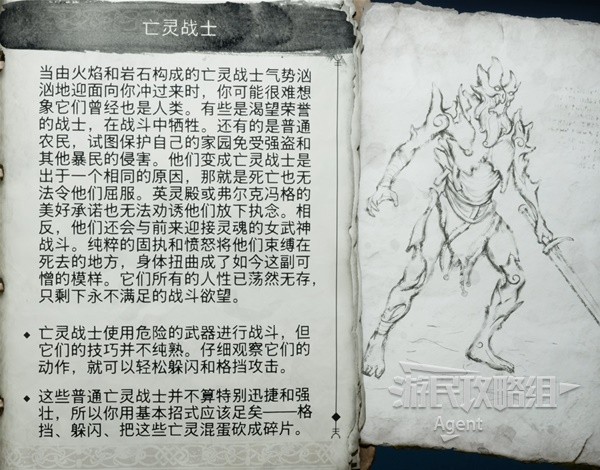 亡灵战士
当由火焰和岩石构成的亡灵战士气势汹
汹地迎面向你冲过来时，你可能很难想
象它们曾经也是人类。有些是渴望荣誉
的战士，在战斗中牺牲。还有的是普通
农民，试图保护自己的家园免受强盗和
其他暴民的侵害。他们变成亡灵战士是
出于一个相同的原因，那就是死亡也无
法令他们屈服。英灵殿或弗尔克冯格的
美好承诺也无法劝诱他们放下执念。相
反，他们还会与前来迎接灵魂的女武神
战斗。纯粹的固执和愤怒将他们束缚在
死去的地方，身体扭曲成了如今这副可
憎的模样。它们所有的人性已荡然无存，
只剩下永不满足的战斗欲望。
◆ 亡灵战士使用危险的武器进行战斗，但
它们的技巧并不纯熟。仔细观察它们的
动作，就可以轻松躲闪和格挡攻击。
◆ 这些普通亡灵战士并不算特别迅捷和强
壮，所以你用基本招式应该足矣——格
挡、躲闪、把这些亡灵混蛋砍成碎片。
游民攻略组
Agent